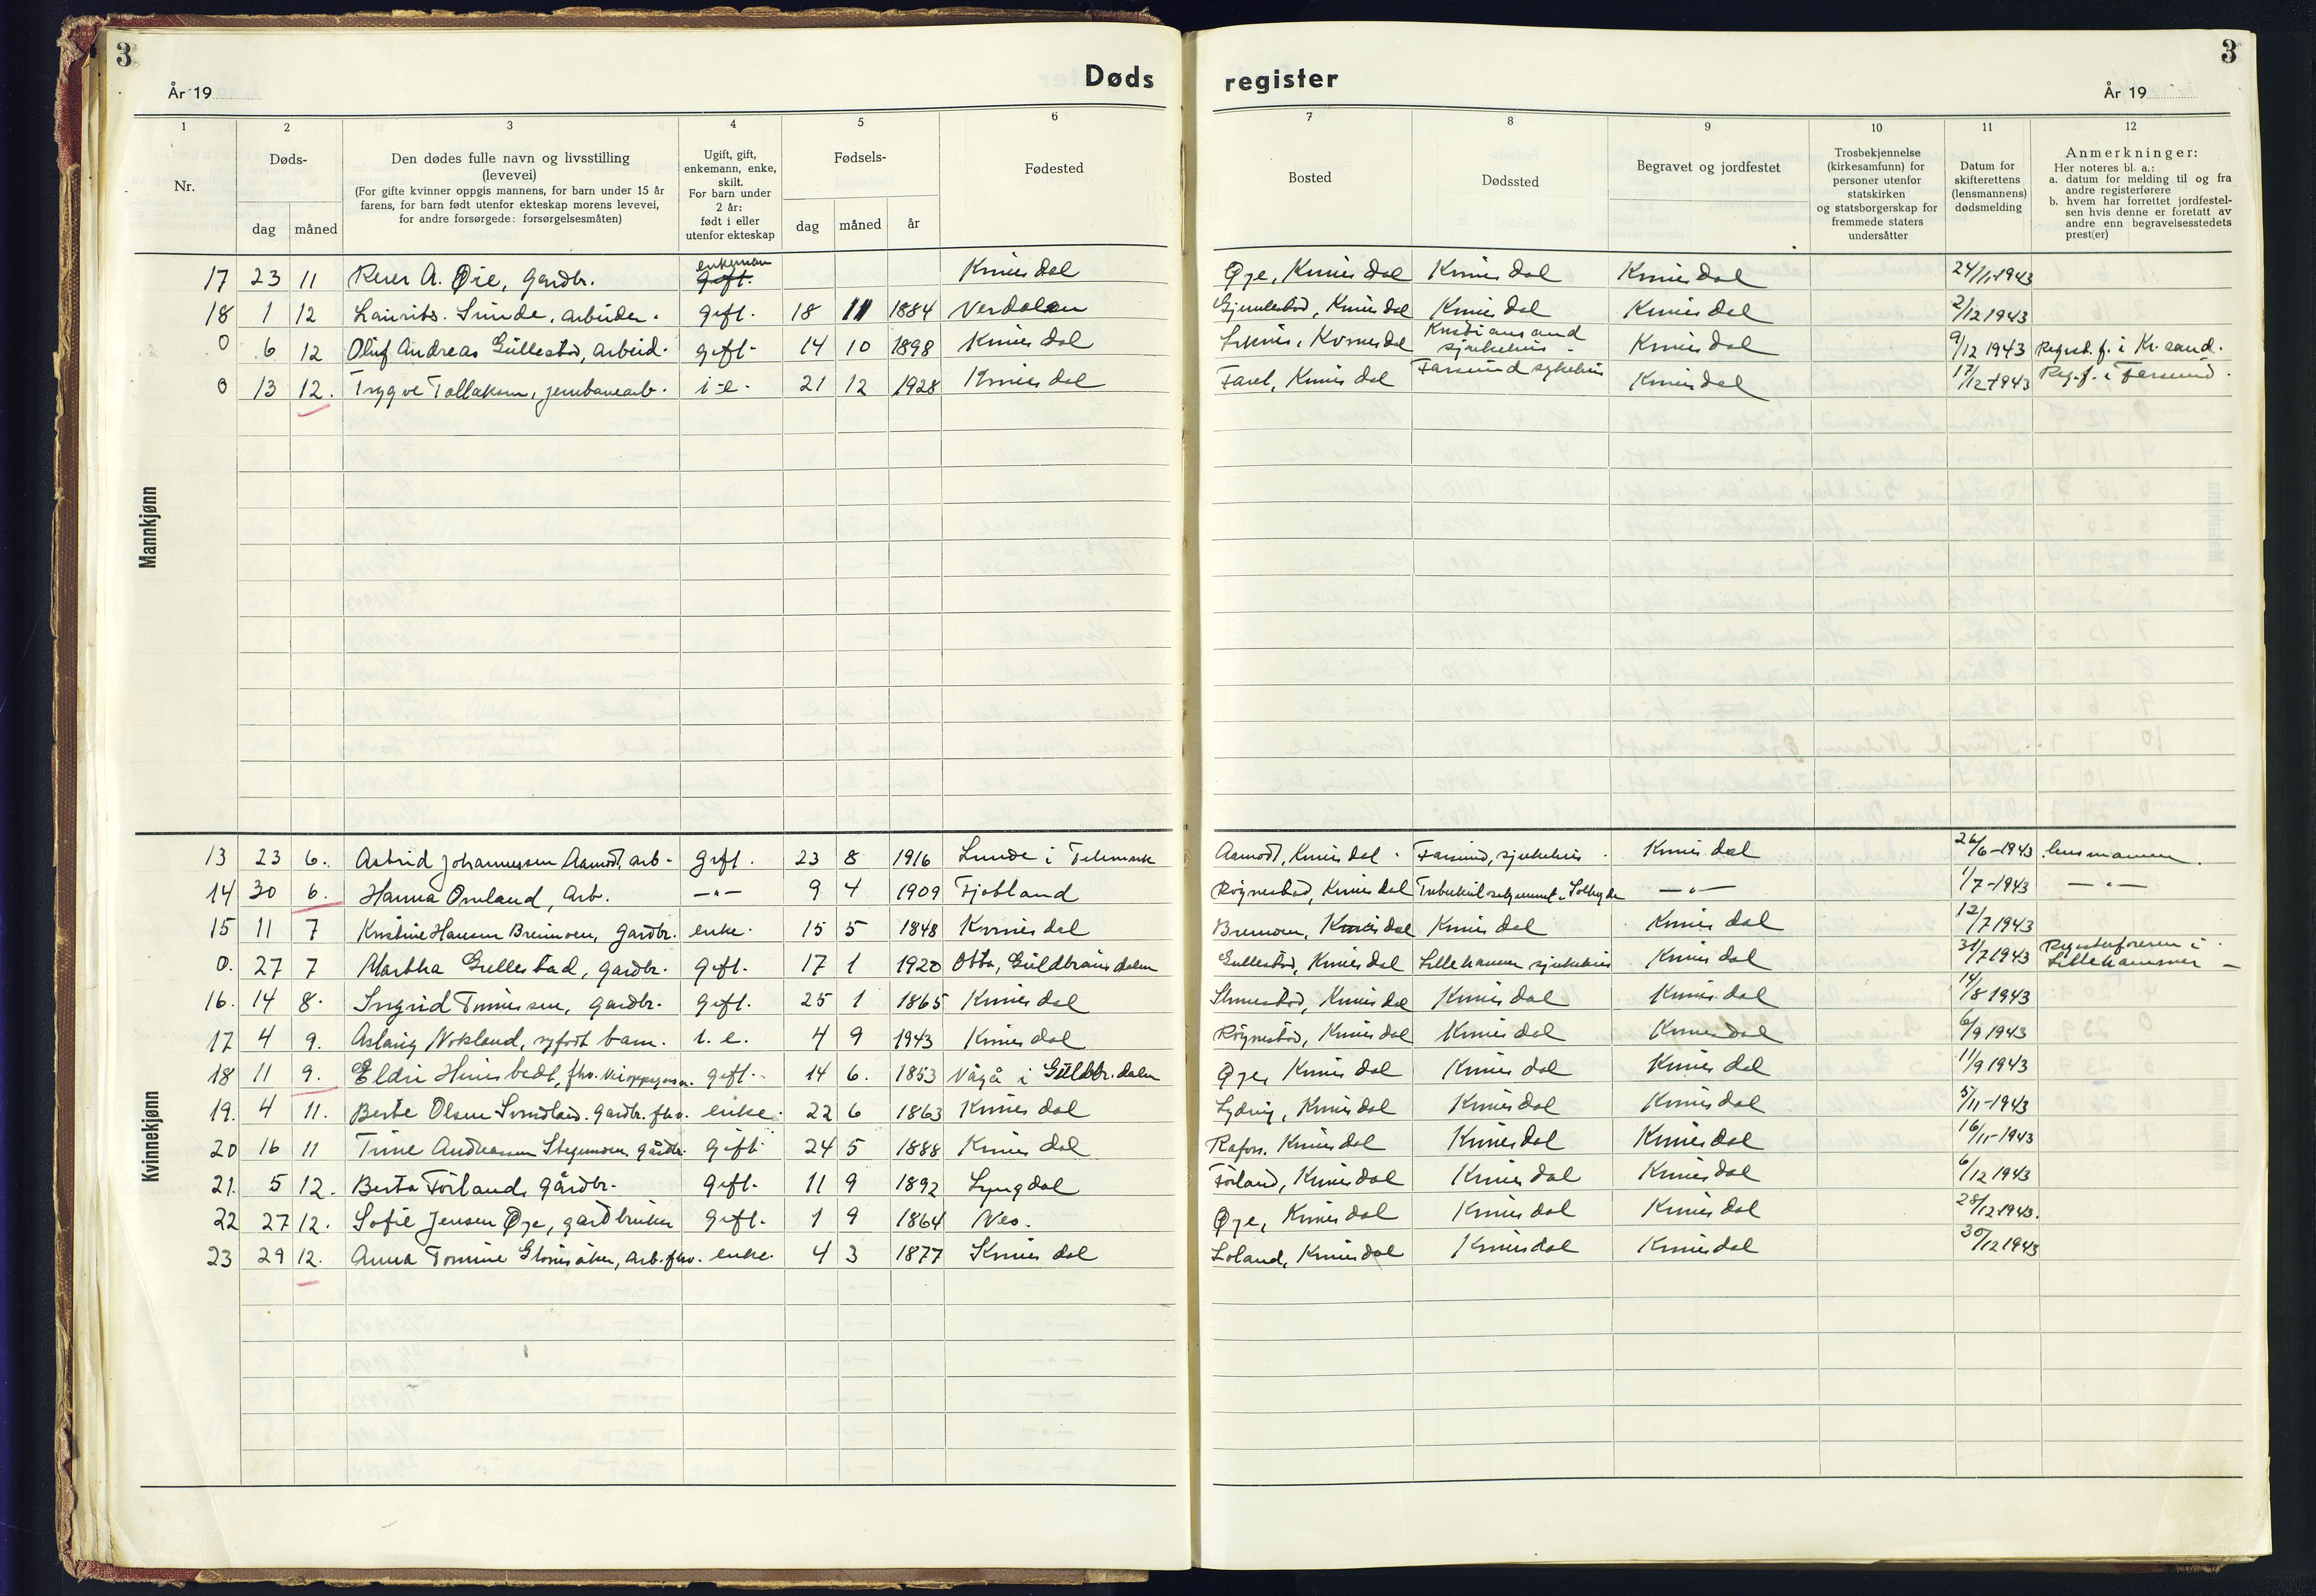 3
År 19
Døds
register
3
År 19
1 2 3 4 5 6 7 8 9 10 11 12
Nr.
Døds-
dag måned
Den dødes fulle navn og livsstilling
(levevei)
(For gifte kvinner oppgis mannens, for barn under 15 år
farens, for barn født utenfor ekteskap morens levevei,
for andre forsørgede: forsørgelsesmåten)
Ugift, gift,
enkemann, enke,
skilt.
For barn under
2 år:
født i eller
utenfor ekteskap
Fødsels-
dag måned år
Fødested
Bosted
Dødssted
Begravet og jordfestet
Trosbekjennelse
(kirkesamfunn) for
personer utenfor
statskirken
og statsborgerskap for
fremmede staters
undersåtter
Datum for
skifterettens
(lensmannens)
dødsmelding
Anmerkninger:
Her noteres bl. a.:
a. datum for melding til og fra
andre registerførere
b. hvem har forrettet jordfestel-
sen hvis denne er foretatt av
andre enn begravelsesstedets
prest(er)
Mannkjønn
17 23 11 A. Øie, gardbr. enkeman gift. Kvinesdal Øye, Kvinesdal Kvinesdal Kvinesdal 24/11-1943
18 1 12 Laurits Sunde, arbeider. gift. 18 11 1884 Verdalen Kvinesdal Kvinesdal Kvinesdal 2/12 1943
0 6 12 Oluf Andreas Gullestad, arbeid. gift. 14 10 1898 Kvinesdal Kvinesdal Kristiansand sjukehus Kvinesdal 9/12 1943 Regist. f. i Kr. sand.
0 13 12. Trygve Tollaksen, jernbanearb. i-e. 21 12 1928 Kvinesdal Faret, Kvinesdal Farsund sykehus Kvinesdal 17/12 1943 Reg. f. i Farsund.
Kvinnekjønn
13 23 6. Astrid Johannessen Aamodt, arb. gift. 23 8 1916 Lunde i Telemark Aamodt, Kvinesdal. Farsund, sjukehus. Kvinesdal 26/6-1943 lensmannen.
14 30 6. Hanna Omland, Arb. —"— 9 4 1909 Fjotland Røynestad, Kvinesdal —"— 1/7-1943 —"—
15 11 7 Kristine Hansen Bremoen, gardbr. enke. 15 5 1848 Kvinesdal Bremoen, Kvinesdal Kvinesdal Kvinesdal 12/7 1943
0. 27 7 Martha Gullestad, gardbr. gift. 17 1 1920 Otta, Guldbrandsdalen Gullestad, Kvinesdal Lillehammer sjukehus Kvinesdal 31/7 1943 Registerføreren i Lillehammer
16. 14 8. Ingrid gardbr. gift. 25 1 1865 Kvinesdal Kvinesdal Kvinesdal Kvinesdal 14/8 1943
17 4 9. Aslaug Nokland, nyfødt barn. i. e. 4 9 1943 Kvinesdal Røynestad, Kvinesdal Kvinesdal Kvinesdal 6/9 1943
18 11 9. Eldri fhv. gift. 14 6. 1853 Vågå i Guldbr.dalen Øye, Kvinesdal Kvinesdal Kvinesdal 11/9 1943
19. 4 11. Berte Olsen gardbr. fhv. enke. 22 6 1863 Kvinesdal Kvinesdal Kvinesdal Kvinesdal 5/11-1943
20 16 11 Trine Andreassen gårdbr. gift 24 5 1888 Kvinesdal Rafoss. Kvinesdal Kvinesdal Kvinesdal 16/11-1943
21. 5 12. Berta Førland, gårdbr. gift. 11 9 1892 Lyngdal Førland, Kvinesdal Kvinesdal Kvinesdal 6/12 1943
22 27 12. Sofie Jensen Øye, gardbruker gift. 1 9 1864 Nes. Øye, Kvinesdal Kvinesdal Kvinesdal 28/12 1943.
23 29 12. Anna Tomine arb. fhv. enke. 4 3 1877 Kvinesdal Loland, Kvinesdal Kvinesdal Kvinesdal 30/12 1943